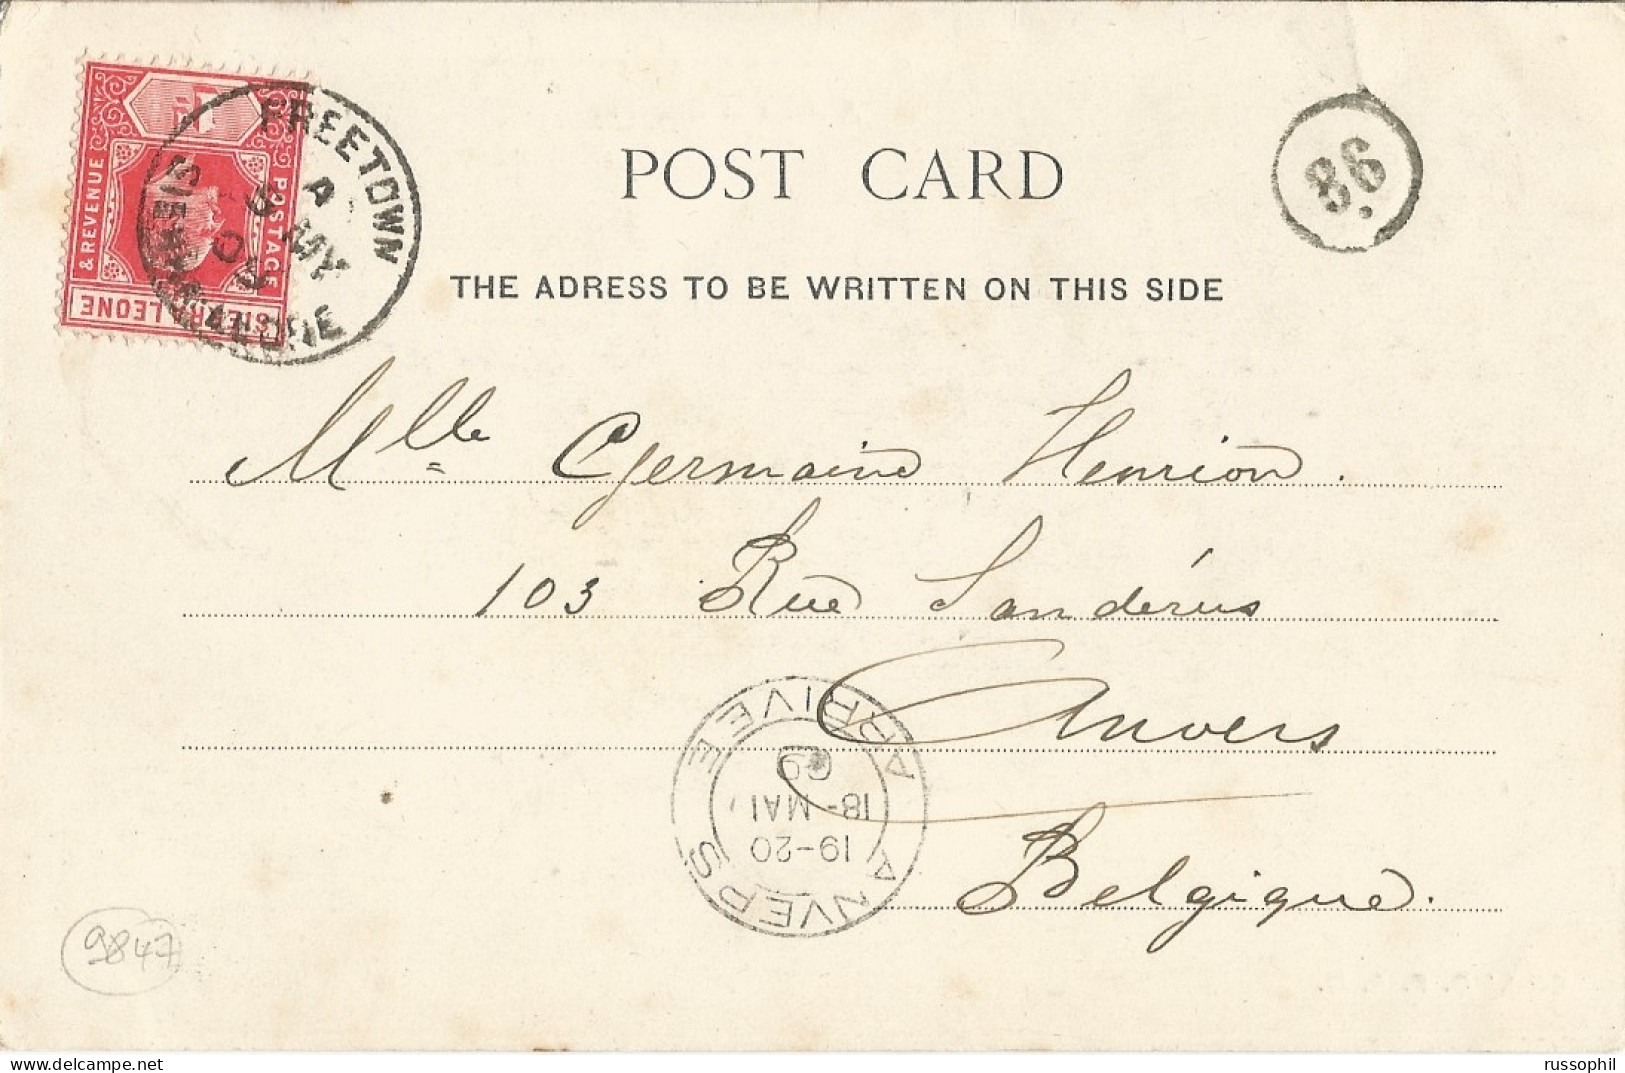 POSTAGE
& REVENUE
SIERRA LEONE
FREETOWN
SIERRA LEONE
A
MY
86
POST CARD
THE ADRESS TO BE WRITTEN ON THIS SIDE
Mlle Germaine Henrion.
103 Rue Sandérus
Anvers
Belgique.
ANVERS
19-20
18-MAI
09
ARRIVEE
9847
russophil